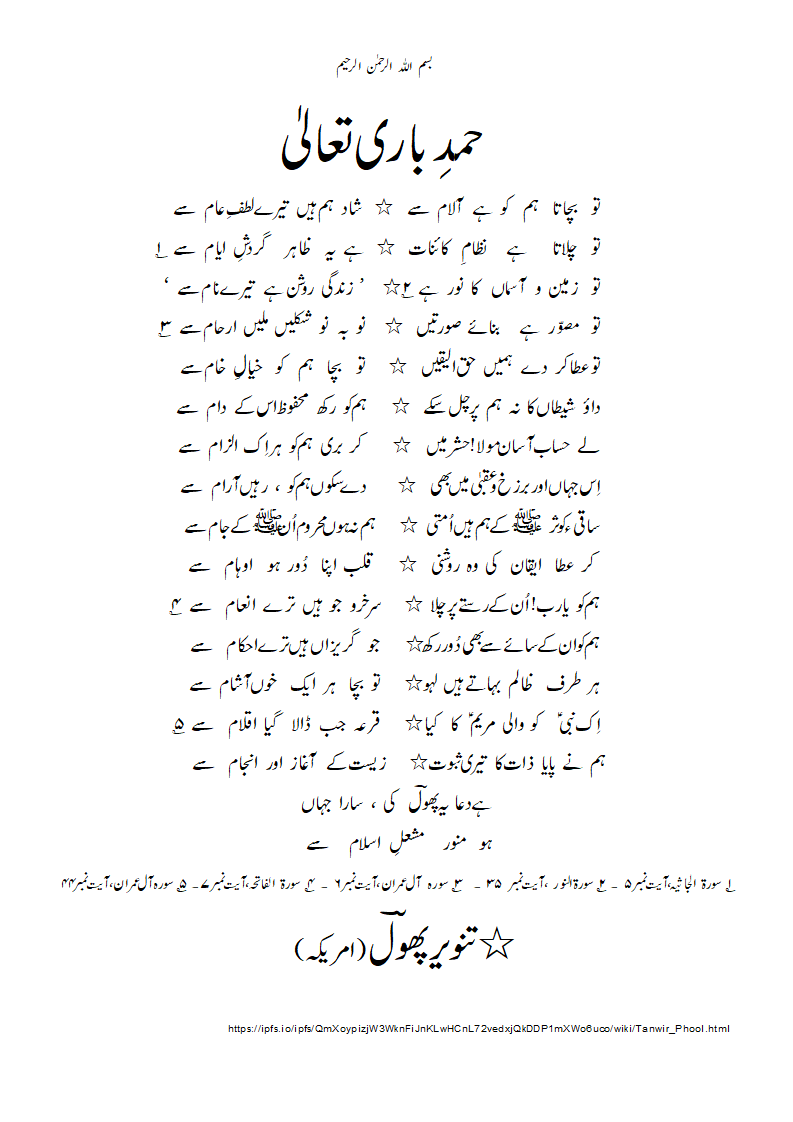 بسم اللہ الرحمٰن الرحیم
حمدِ باری تعالیٰ
تو بچاتا ہم کو ہے آلام سے ☆ شاد ہم ہیں تیرے لطفِ عام سے
تو چلاتا ہے نظامِ کائنات ☆ ہے یہ ظاہر گردشِ ایام سے ۱؂
تو زمین و آسماں کا نور ہے ۲؂☆ ’ زندگی روشن ہے تیرے نام سے ‘
تو مصوّر ہے بنائے صورتیں ☆ نو بہ نو شکلیں ملیں ارحام سے ۳؂
تو عطا کر دے ہمیں حق الیقیں ☆ تو بچا ہم کو خیالِ خام سے
داؤ شیطاں کا نہ ہم پر چل سکے ☆ ہم کو رکھ محفوظ اس کے دام سے
لے حساب آسان مولا! حشر میں ☆ کر بری ہم کو ہر اِک الزام سے
اِس جہاں اور برزخ و عقبٰی میں بھی ☆ دے سکوں ہم کو ، رہیں آرام سے
ساقیٔ کوثر ﷺ کے ہم ہیں اُمتی ☆ ہم نہ ہوں محروم اُن ﷺ کے جام سے
کر عطا ایقان کی وہ روشنی ☆ قلب اپنا دُور ہو اوہام سے
ہم کو یارب! اُن کے رستے پر چلا ☆ سرخرو جو ہیں ترے انعام سے ۴؂
ہم کو ان کے سائے سے بھی دُور رکھ☆ جو گریزاں ہیں ترے احکام سے
ہر طرف ظالم بہاتے ہیں لہو☆ تو بچا ہر ایک خوں آشام سے
اِک نبیؑ کو والی مریمؑ کا کیا☆ قرعہ جب ڈالا گیا اقلام سے ۵؂
ہم نے پایا ذات کا تیری ثبوت☆ زیست کے آغاز اور انجام سے
ہے دعا یہ پھولؔ کی ، سارا جہاں
ہو منور مشعلِ اسلام سے
۱؂ سورۃ الجاثیہ،آیت نمبر۵ ۔ ۲؂ سورۃ النور ،آیت نمبر ۳۵ ۔ ۳؂ سورہ آل عمران،آیت نمبر۶ ۔ ۴؂ سورۃ الفاتحہ،آیت نمبر۷۔ ۵؂ سورہ آل عمران،آیت نمبر۴۴
☆ تنویر پھولؔ (امریکہ)
https://ipfs.io/ipfs/QmXoypizjW3WknFiJnKLwHCnL72vedxjQkDDP1mXWo6uco/wiki/Tanwir_Phool.html